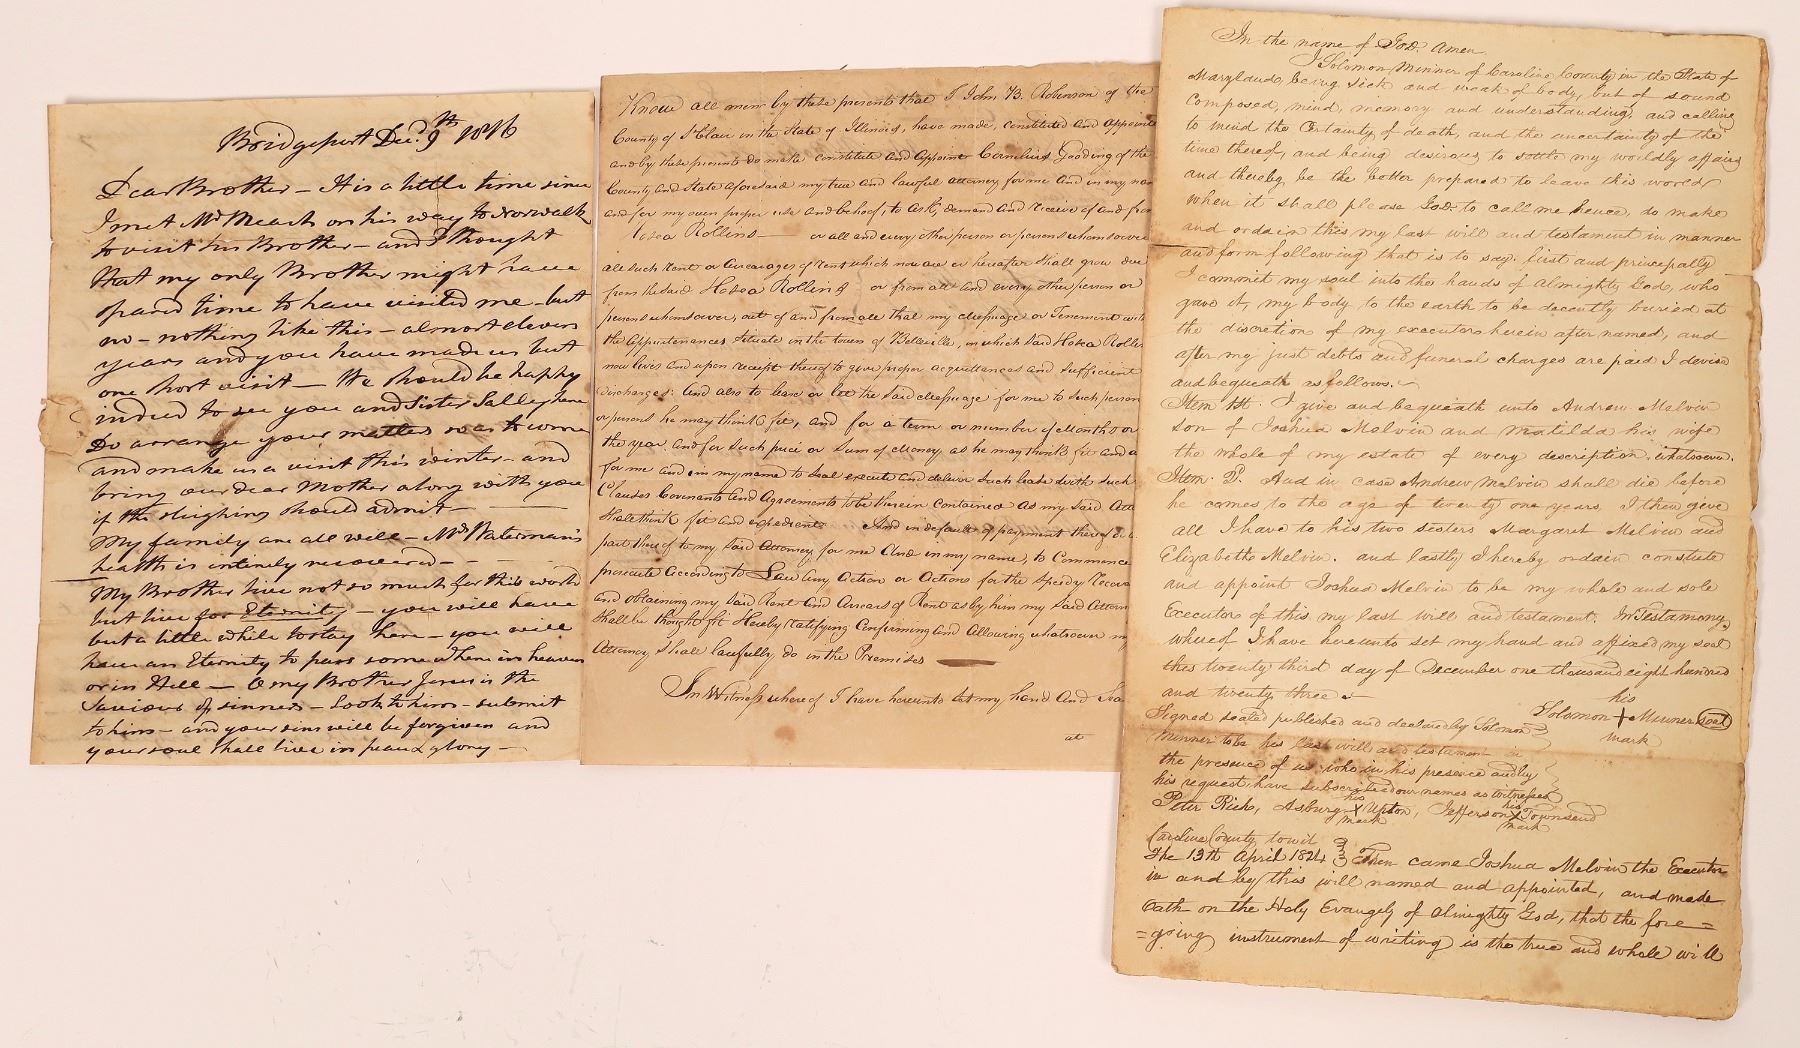 Bridgeport Dec. 9th 1816
Dear Brother - It is a little time since
I met Mr Meach on his way to Norwalk
to visit his Brother - and I thought
that my only Brother might have
spared time to have visited me - but
no - nothing like this - almost eleven
years and you have made us but
one short visit - We should be happy
indeed to see you and Sister Salley here
Do arrange your matters so as to come
and make us a visit this winter - and
bring our dear Mother along with you
if the sleighing should admit -
My family are all well - Mrs Waterman's
health is intirely recovered -
My Brother live not so much for this world
but live for Eternity - you will have
but a little while to stay here - you will
have an Eternity to pass some where in heaven
or in Hell - O my Brother Jesus is the
Saviour of sinners - Look to him - submit
to him - and your sins will be forgiven and
your soul shall live in peace & glory -
Know all men by these presents that I John B. Robinson of the
County of St Clair in the State of Illinois, have made, constituted and appointe
and by these presents do make constitute and appoint Cornelius Gooding of the
County and State aforesaid my true and lawful attorney for me and in my nam
and for my own proper use and behoof, to ask, demand and receive of and from
Hosea Rollins or all and every other person or persons whomsoever
all such rent or arrearages of rent which now are or hereafter shall grow due
from the said Hosea Rollins or from all and every other person or
persons whomsoever, out of and from all that my messuage or Tenement with
the appurtenances situate in the town of Belleville, in which said Hosea Rollin
now lives and upon receipt thereof to give proper acquittances and sufficient
discharges: and also to lease or let the said messuage for me to such person
or persons he may think fit, and for a term or number of Months or
the year and for such price or sum of Money as he may think fit and a
for me and in my name to seal execute and deliver such lease with such
Clauses Covenants and Agreements to be therein contained as my said Atto
shall think fit and expedient And in default of payment thereof
part thereof to my said Attorney for me and in my name, to Commence
prosecute according to Law any Action or Actions for the speedy recove
and obtaining my said Rent and Arrears of Rent as by him my said Attorn
shall be thought fit Hereby ratifying Confirming and allowing whatsoever my
Attorney shall lawfully do in the Premises
In Witness whereof I have hereunto set my hand and Sea
at
In the name of God. Amen.
I Solomon Minner of Caroline County in the State of
Maryland, being sick and weak of body, but of sound
composed, mind, memory and understanding, and calling
to mind the Certainty of death, and the uncertainty of the
time thereof, and being desirous to settle my worldly affairs
and thereby be the better prepared to leave this world
when it shall please God to call me hence, do make
and ordain this my last will and testament in manner
and form following that is to say. first and principally
I commit my soul into the hands of Almighty God, who
gave it, my body to the earth to be decently buried at
the discretion of my executors herein after named, and
after my just debts and funeral charges are paid I devise
and bequeath as follows.
Item 1st. I give and bequeath unto Andrew Melvin
son of Joshua Melvin and Matilda his wife
the whole of my estate of every description, whatsoever.
Item 2. And in case Andrew Melvin shall die before
he comes to the age of twenty one years, I then give
all I have to his two sisters Margaret Melvin and
Elizabeth Melvin. and lastly I hereby ordain constute
and appoint Joshua Melvin to be my whole and sole
Executor of this my last will and testament. In Testamony
whereof I have hereunto set my hand and affixed my seal
this twenty third day of December one thousand eight hundred
and twenty three
his
Solomon + Minner seal
mark
Signed sealed published and declared by Solomon
Minner to be his last will and testament in
the presence of us who in his presence and by
his request have subscribed our names as witnesses
Peter Rich, Asbury his X mark Upton, Jefferson his X mark Townsend
Caroline County to wit
The 13th April 1824 Then came Joshua Melvin the Executor
in and by this will named and appointed, and made
Oath on the Holy Evangely of Almighty God, that the fore=
=going instrument of writing is the true and whole will